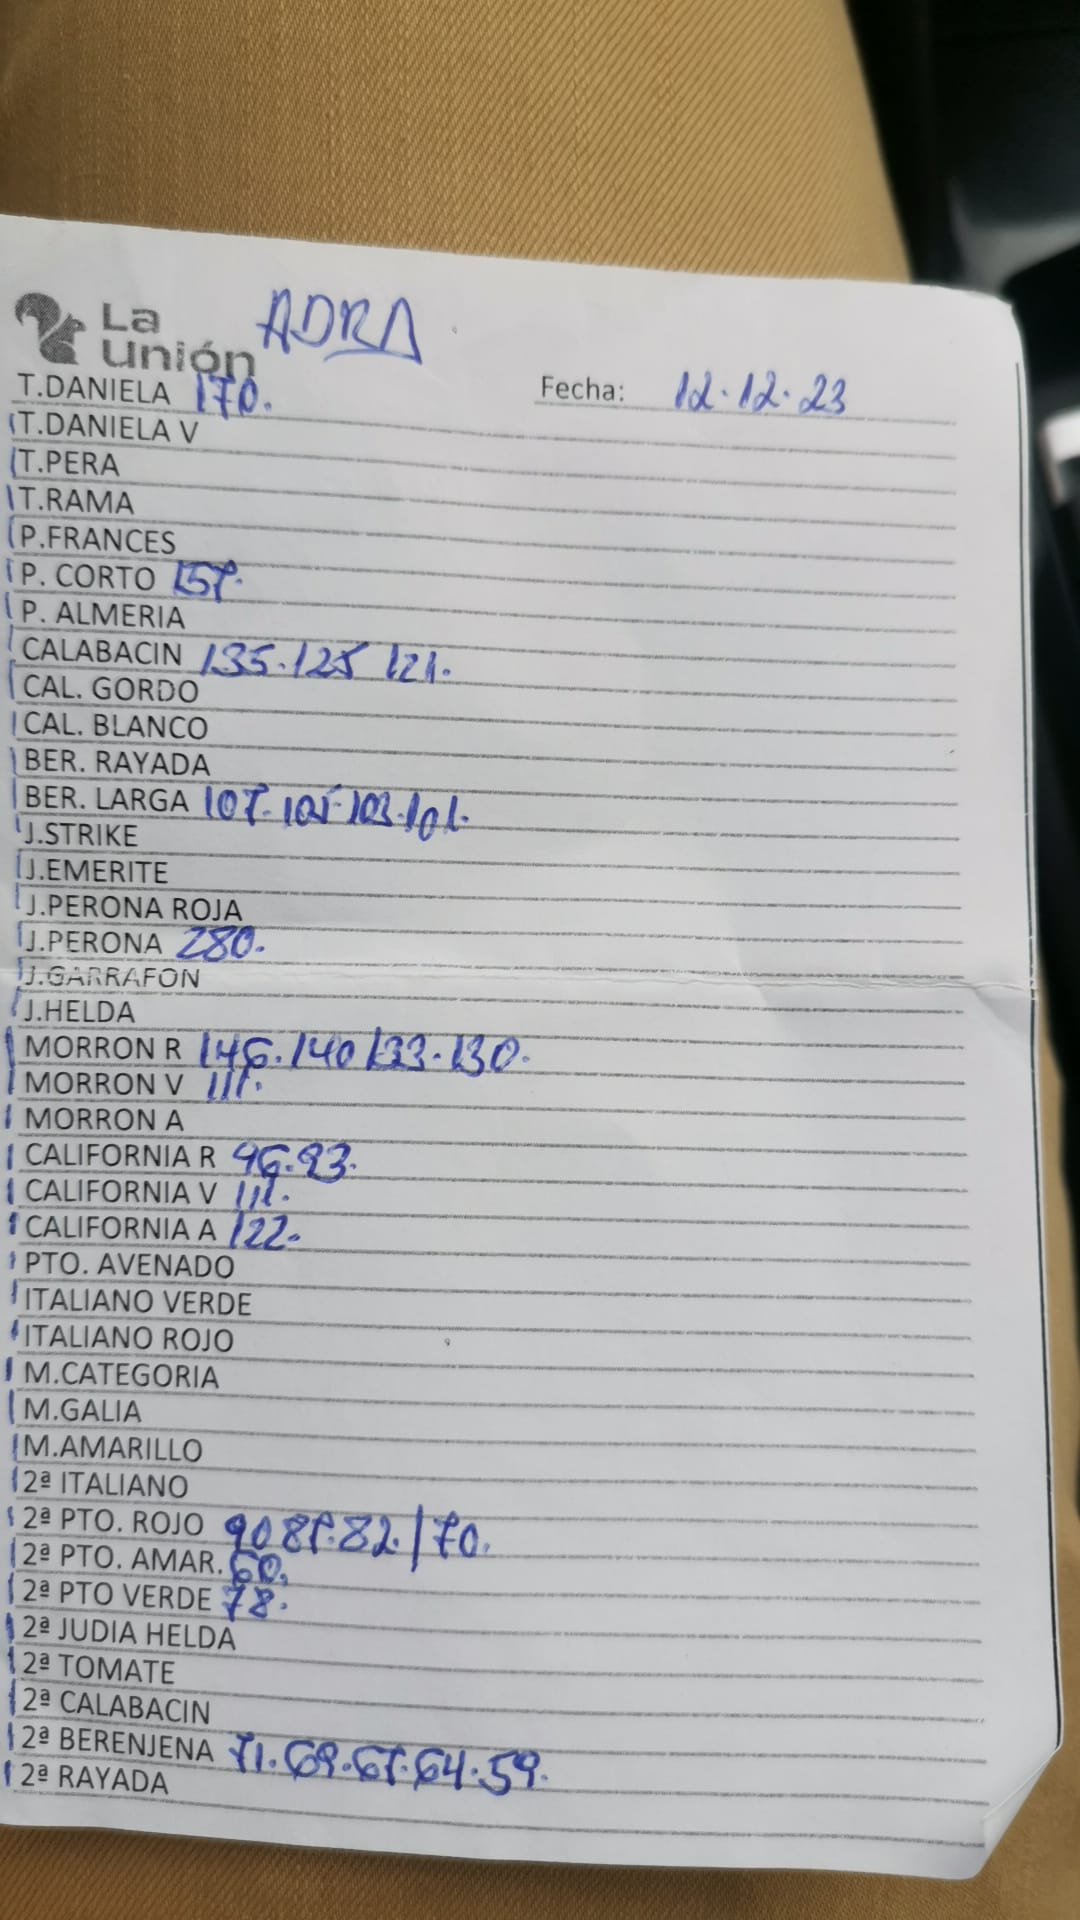 La
unión
ADRA
T.DANIELA 170. Fecha: 12.12.23
T.DANIELA V
T.PERA
T.RAMA
P.FRANCES
P. CORTO 157.
P. ALMERIA
CALABACIN 135.125 121.
CAL. GORDO
CAL. BLANCO
BER. RAYADA
BER. LARGA 107.105.103.101.
J.STRIKE
J.EMERITE
J.PERONA ROJA
J.PERONA 280.
J.GARRAFON
J.HELDA
MORRON R 146.140 133.130.
MORRON V 111.
MORRON A
CALIFORNIA R 96.93.
CALIFORNIA V 111.
CALIFORNIA A 122.
PTO. AVENADO
ITALIANO VERDE
ITALIANO ROJO
M.CATEGORIA
M.GALIA
M.AMARILLO
2ª ITALIANO
2ª PTO. ROJO 90 87.82./70.
2ª PTO. AMAR. 60.
2ª PTO VERDE 78.
2ª JUDIA HELDA
2ª TOMATE
2ª CALABACIN
2ª BERENJENA 71.69.67.64.59.
2ª RAYADA